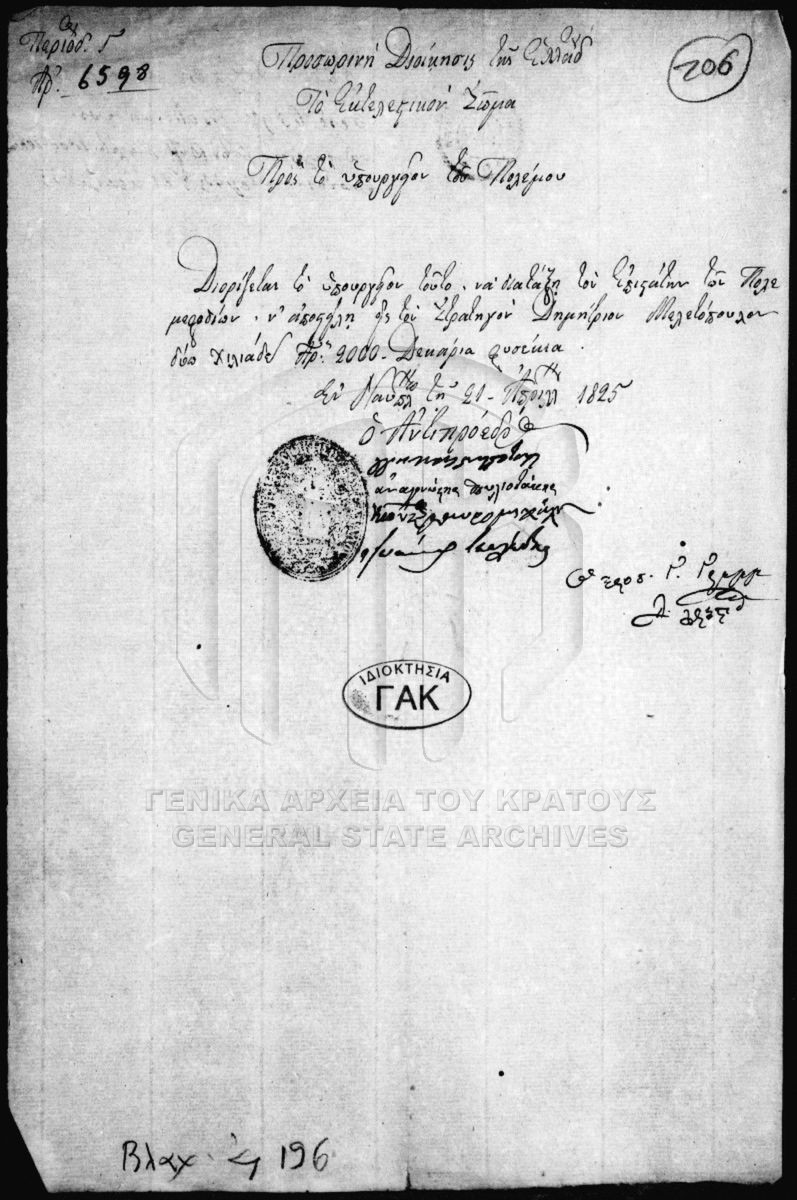 Περίοδ. Γ
Ἀρ. 6598
206
Προσωρινὴ Διοίκησις τῆς Ἑλλάδ
Τὸ Ἐκτελεστικὸν Σῶμα
Πρὸς τὸ ὑπουργεῖον τοῦ Πολέμου
Διορίζεται τὸ ὑπουργεῖον τοῦτο νὰ διατάξῃ τὸν Ἐπιστάτην τῶν Πολε
μεφοδίων, ν' ἀποστείλῃ εἰς τὸν Στρατηγὸν Δημήτριον Μελετόπουλον
δύω χιλιάδες ἀρ. 2000 Δεκάρια φυσέκια.
Ἐν Ναυπλ τῇ 21 Ἀπριλλ 1825
ὁ Ἀντιπρόεδρος
ἀναγνώστης
Ὁ προσ. Γ. Γραμμ
ΙΔΙΟΚΤΗΣΙΑ
ΓΑΚ
ΓΕΝΙΚΑ ΑΡΧΕΙΑ ΤΟΥ ΚΡΑΤΟΥΣ
GENERAL STATE ARCHIVES
Βλαχ. 196